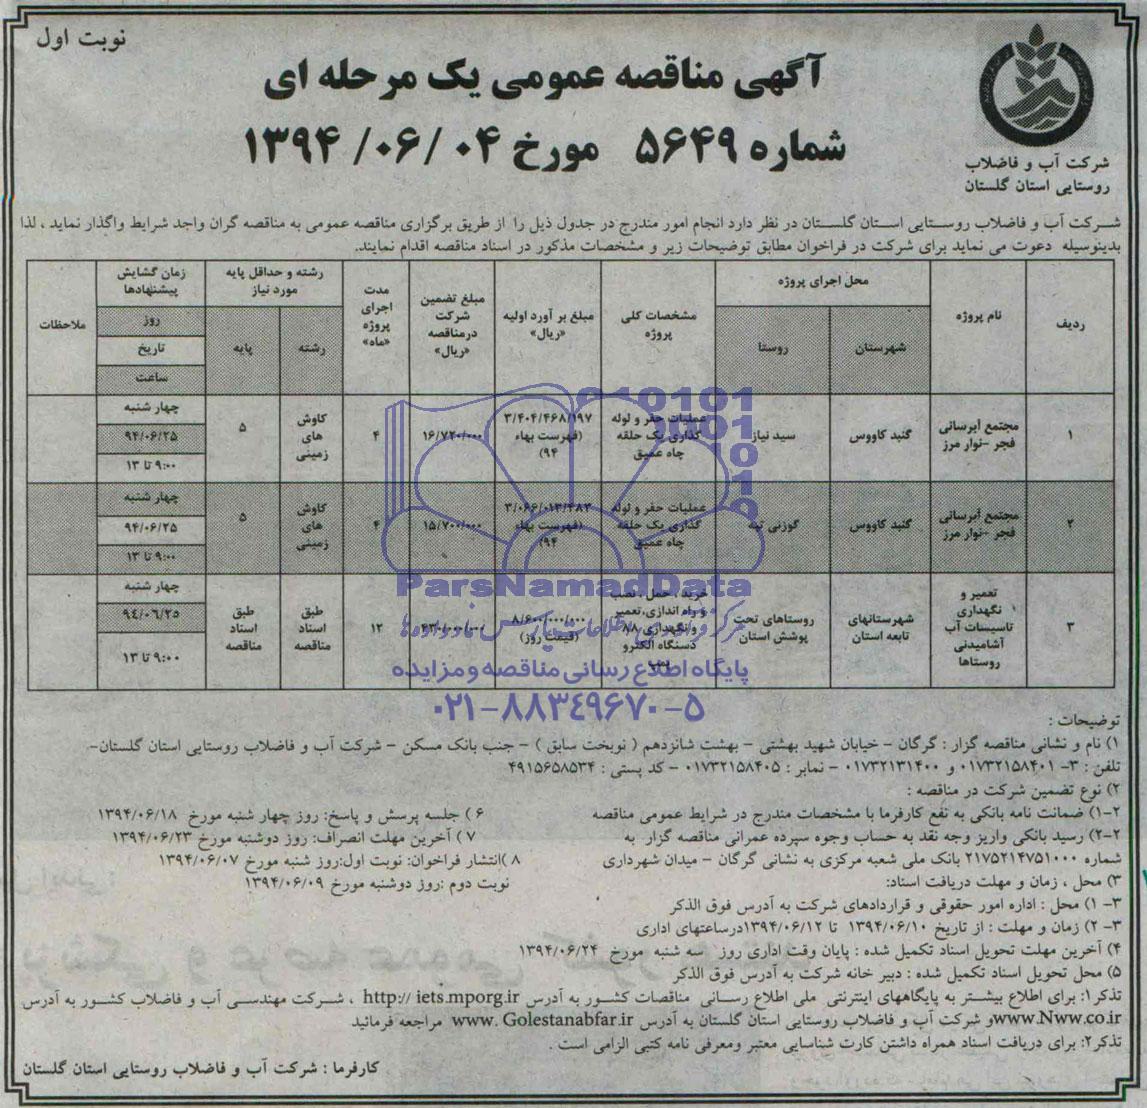 نوبت اول
آگهی مناقصه عمومی یک مرحله ای
شماره ۵۶۴۹ مورخ ۰۴ /۰۶/ ۱۳۹۴
شرکت آب و فاضلاب
روستایی استان گلستان
شرکت آب و فاضلاب روستایی استان گلستان در نظر دارد انجام امور مندرج در جدول ذیل را از طریق برگزاری مناقصه عمومی به مناقصه گران واجد شرایط واگذار نماید ، لذا
بدینوسیله دعوت می نماید برای شرکت در فراخوان مطابق توضیحات زیر و مشخصات مذکور در اسناد مناقصه اقدام نمایند.
ردیف
نام پروژه
محل اجرای پروژه
شهرستان
روستا
مشخصات کلی
پروژه
مبلغ بر آورد اولیه
«ریال»
مبلغ تضمین
شرکت
درمناقصه
«ریال»
مدت
اجرای
پروژه
«ماه»
رشته و حداقل پایه
مورد نیاز
رشته
پایه
زمان گشایش
پیشنهادها
روز
تاریخ
ساعت
ملاحظات
۱
مجتمع آبرسانی
فجر -نوار مرز
گنبد کاووس
سید نیاز
عملیات حفر و لوله
گذاری یک حلقه
چاه عمیق
۳/۴۰۴/۴۶۸/۱۹۷
(فهرست بهاء
۹۴)
۱۶/۷۲۰/۰۰۰
۴
کاوش
های
زمینی
۵
چهار شنبه
۹۴/۰۶/۲۵
۹:۰۰ تا ۱۳
۲
مجتمع آبرسانی
فجر -نوار مرز
گنبد کاووس
گوزنی تپه
عملیات حفر و لوله
گذاری یک حلقه
چاه عمیق
۳/۰۶۶/۰۱۳/۴۸۳
(فهرست بهاء
۹۴)
۱۵/۷۰۰/۰۰۰
۴
کاوش
های
زمینی
۵
چهار شنبه
۹۴/۰۶/۲۵
۹:۰۰ تا ۱۳
۳
تعمیر و
نگهداری
تاسیسات آب
آشامیدنی
روستاها
شهرستانهای
تابعه استان
روستاهای تحت
پوشش استان
خرید ، حمل ، نصب
و راه اندازی،تعمیر
و نگهداری ۸۸
دستگاه الکترو
پمپ
۸/۶۰۰/۰۰۰/۰۰۰
(قیمت روز)
۴۳۰/۰۰۰/۰۰۰
۱۲
طبق
اسناد
مناقصه
طبق
اسناد
مناقصه
چهار شنبه
۹٤/۰٦/۲۵
۹:۰۰ تا ۱۳
ParsNamadData
پایگاه اطلاع رسانی مناقصه و مزایده
۰۲۱-۸۸۳۴۹۶۷۰-۵
توضیحات :
۱) نام و نشانی مناقصه گزار : گرگان - خیابان شهید بهشتی - بهشت شانزدهم ( نوبخت سابق ) - جنب بانک مسکن - شرکت آب و فاضلاب روستایی استان گلستان-
تلفن : ۳- ۰۱۷۳۲۱۵۸۴۰۱ و ۰۱۷۳۲۱۳۱۴۰۰ - نمابر : ۰۱۷۳۲۱۵۸۴۰۵ - کد پستی : ۴۹۱۵۶۵۸۵۳۴
۲) نوع تضمین شرکت در مناقصه :
۲-۱) ضمانت نامه بانکی به نفع کارفرما با مشخصات مندرج در شرایط عمومی مناقصه
۲-۲) رسید بانکی واریز وجه نقد به حساب وجوه سپرده عمرانی مناقصه گزار به
شماره ۲۱۷۵۲۱۴۷۵۱۰۰۰ بانک ملی شعبه مرکزی به نشانی گرگان - میدان شهرداری
۳) محل ، زمان و مهلت دریافت اسناد:
۳- ۱) محل : اداره امور حقوقی و قراردادهای شرکت به آدرس فوق الذکر
۳- ۲) زمان و مهلت : از تاریخ ۱۳۹۴/۰۶/۱۰ تا ۱۳۹۴/۰۶/۱۲درساعتهای اداری
۴) آخرین مهلت تحویل اسناد تکمیل شده : پایان وقت اداری روز سه شنبه مورخ ۱۳۹۴/۰۶/۲۴
۵) محل تحویل اسناد تکمیل شده : دبیر خانه شرکت به آدرس فوق الذکر
۶ ) جلسه پرسش و پاسخ: روز چهار شنبه مورخ ۱۳۹۴/۰۶/۱۸
۷ ) آخرین مهلت انصراف: روز دوشنبه مورخ ۱۳۹۴/۰۶/۲۳
۸ )انتشار فراخوان: نوبت اول:روز شنبه مورخ ۱۳۹۴/۰۶/۰۷
نوبت دوم :روز دوشنبه مورخ ۱۳۹۴/۰۶/۰۹
تذکر۱: برای اطلاع بیشتر به پایگاههای اینترنتی ملی اطلاع رسانی مناقصات کشور به آدرس http:// iets.mporg.ir ، شرکت مهندسی آب و فاضلاب کشور به آدرس
www.Nww.co.irو شرکت آب و فاضلاب روستایی استان گلستان به آدرس www. Golestanabfar.ir مراجعه فرمائید
تذکر۲: برای دریافت اسناد همراه داشتن کارت شناسایی معتبر ومعرفی نامه کتبی الزامی است .
کارفرما : شرکت آب و فاضلاب روستایی استان گلستان